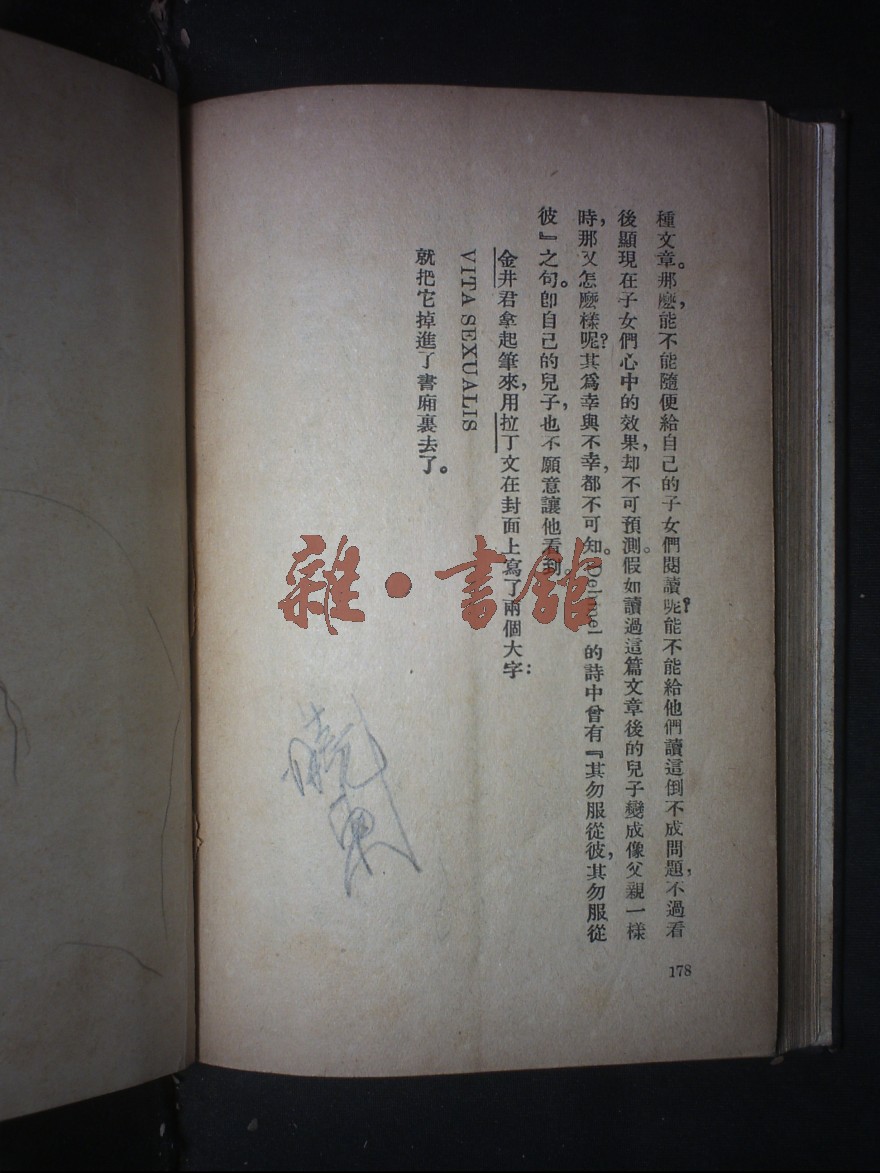 種文章。那麼,能不能隨便給自己的子女們閱讀呢?能不能給他們讀這倒不成問題,不過看
後顯現在子女們心中的效果,却不可預測。假如讀過這篇文章後的兒子變成像父親一樣
時,那又怎麼樣呢?其爲幸與不幸,都不可知。Dehmel的詩中曾有『其勿服從彼,其勿服從
彼』之句。卽自己的兒子,也不願意讓他看到。
金井君拿起筆來,用拉丁文在封面上寫了兩個大字:
VITA SEXUALIS
就把它掉進了書廂裏去了。
178
雜·書館